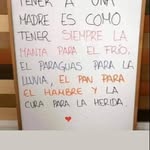 TENER A UNA
MADRE ES COMO
TENER SIEMPRE LA
MANTA PARA EL FRÍO,
EL PARAGUAS PARA LA
LLUVIA, EL PAN PARA
EL HAMBRE Y LA
CURA PARA LA HERIDA.